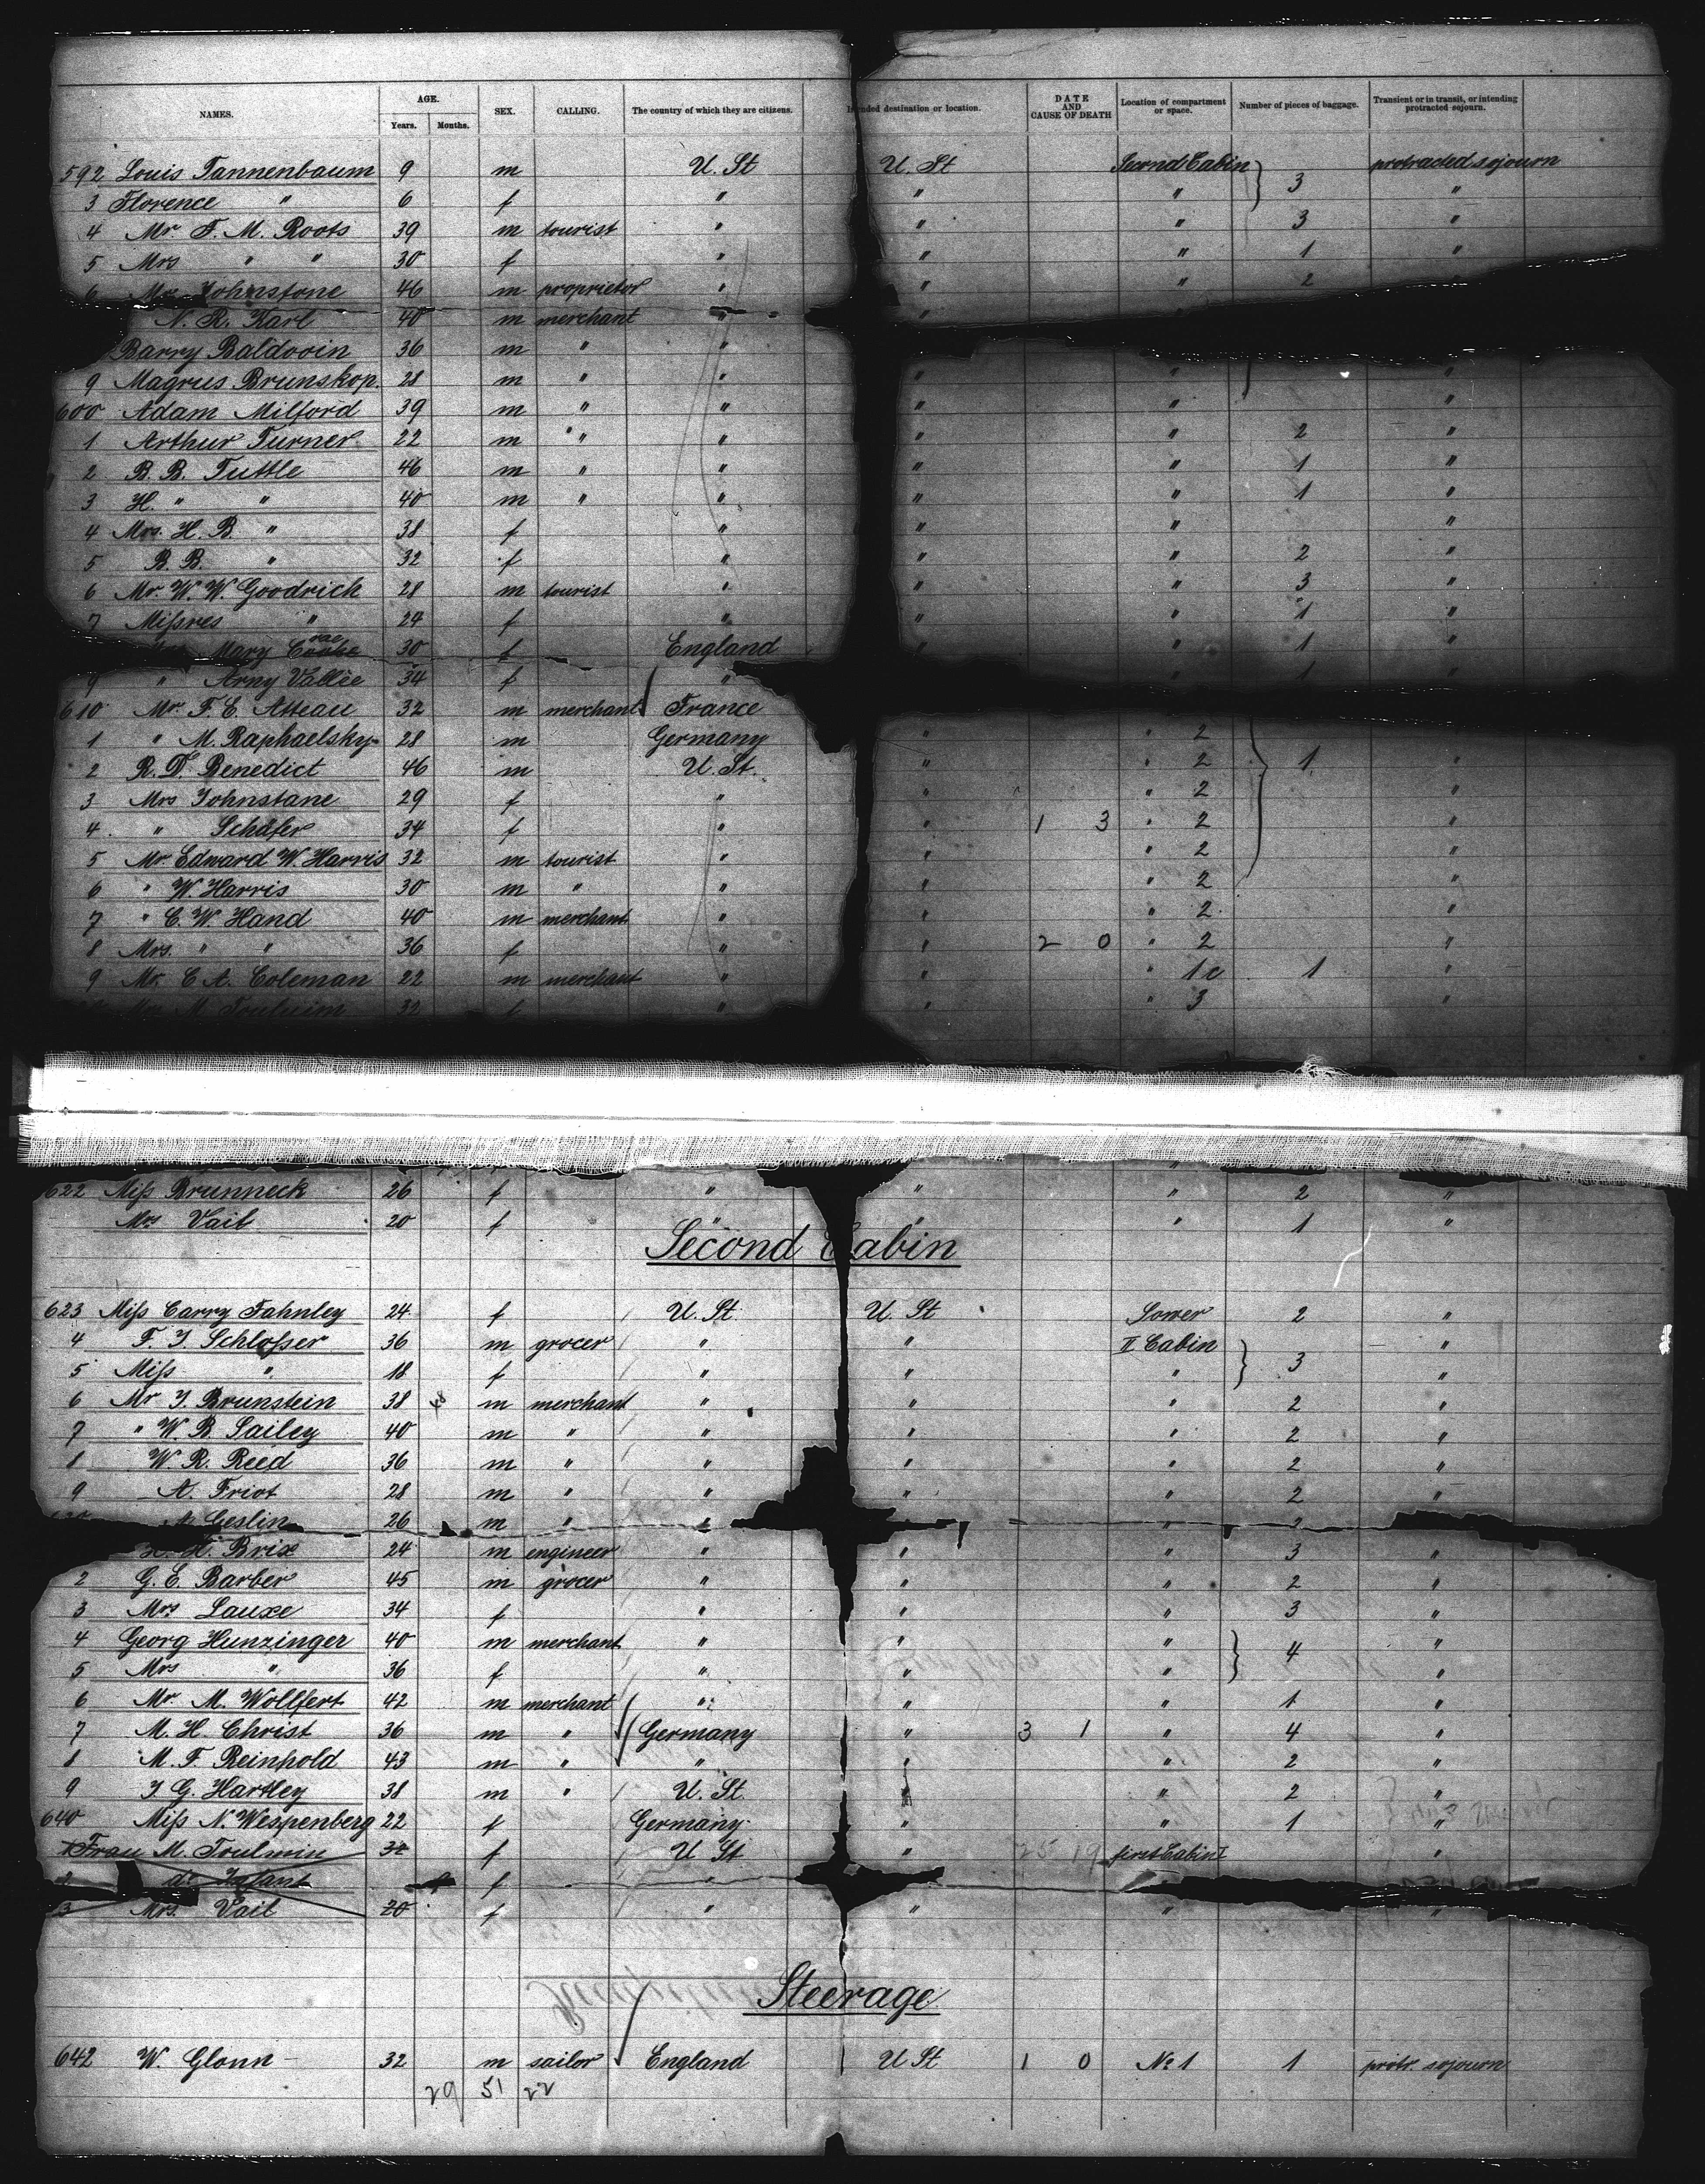 NAMES. AGE. Years. Months. SEX. CALLING. The country of which they are citizens. Intended destination or location. DATE AND CAUSE OF DEATH Location of compartment or space. Number of pieces of baggage. Transient or in transit, or intending protracted sojourn.
592 Louis Tannenbaum 9 m U. St U. St Second Cabin 3 protracted sojourn
3 Florence " 6 f " " " "
4 Mr. F. M. Roots 39 m tourist " " " 3 "
5 Mrs " " 30 f " " " 1 "
6 Mr. Johnstone 46 m proprietor " " " 2 "
N. R. Karl 40 m merchant " "
Barry Baldwin 36 m " "
9 Magnus Brunskop. 28 m " " " " "
600 Adam Milford 39 m " " " " "
1 Arthur Turner 22 m " " " " 2 "
2 B. B. Tuttle 46 m " " " " 1 "
3 H. " " 40 m " " " " 1 "
4 Mrs. H. B. " 38 f " " " "
5 B. B. " 32 f " " " 2 "
6 Mr. W. W. Goodrich 28 m tourist " " " 3 "
7 Missres " 24 f " " " 1 "
Mary 30 f England " " 1 "
9 " Amy Vallèe 34 f " " 1 "
610 Mr. F. E. Atteau 32 m merchant France
1 " M. Raphaelsky 28 m Germany " " 2
2 R. D. Benedict 46 m U. St. " " 2 1 "
3 Mrs Johnstane 29 f " " " 2 "
4 " Schäfer 34 f " " 1 3 " 2 "
5 Mr. Edward W. Harris 32 m tourist " " " 2 "
6 " W. Harris 30 m " " " " 2 "
7 " C. W. Hand 40 m merchant " " " 2 "
8 Mrs. " " 36 f " " 2 0 " 2 "
9 Mr. C. A. Coleman 22 m merchant " " " 1c 1 "
Mrs M. Toulmim 32 f " " " 3 "
622 Miss Brunneck 26 f " " " 2 "
Mrs Vail 20 f " " " 1 "
Second Cabin
623 Miss Carry Fahnley 24 f U. St U. St Lower 2 "
4 F. J. Schlosser 36 m grocer " " II Cabin 3 "
5 Miss " 18 f " " " "
6 Mr J. Brunstein 38 m merchant " " " 2 "
7 " W. B. Lailey 40 m " " " " 2 "
8 W. R. Reed 36 m " " " " 2 "
9 A. Friot 28 m " " " " 2 "
A. Geslin 26 m " " " 2
H. Brix 24 m engineer " " " 3 "
2 G. E. Barber 45 m grocer " " " 2 "
3 Mrs Lauxe 34 f " " " 3 "
4 Georg Hunzinger 40 m merchant " " " 4 "
5 Mrs " 36 f " " " "
6 Mr. M. Wollfert 42 m merchant " " " 1 "
7 M. H. Christ 36 m " Germany " 3 1 " 4 "
8 M. F. Reinhold 43 m " " " " 2 "
9 J G. Hartley 38 m " U. St. " " 2 "
640 Miss N. Wespenberg 22 f Germany " " 1 "
1 Frau M. Toulmin 32 f U St " 25 19 first Cabin I "
2 do Infant f "
3 Mrs. Vail 20 f " " " "
Steerage
642 W. Glonn 32 m sailor England U St 1 0 No 1 1 protr. sojourn
29 51 22